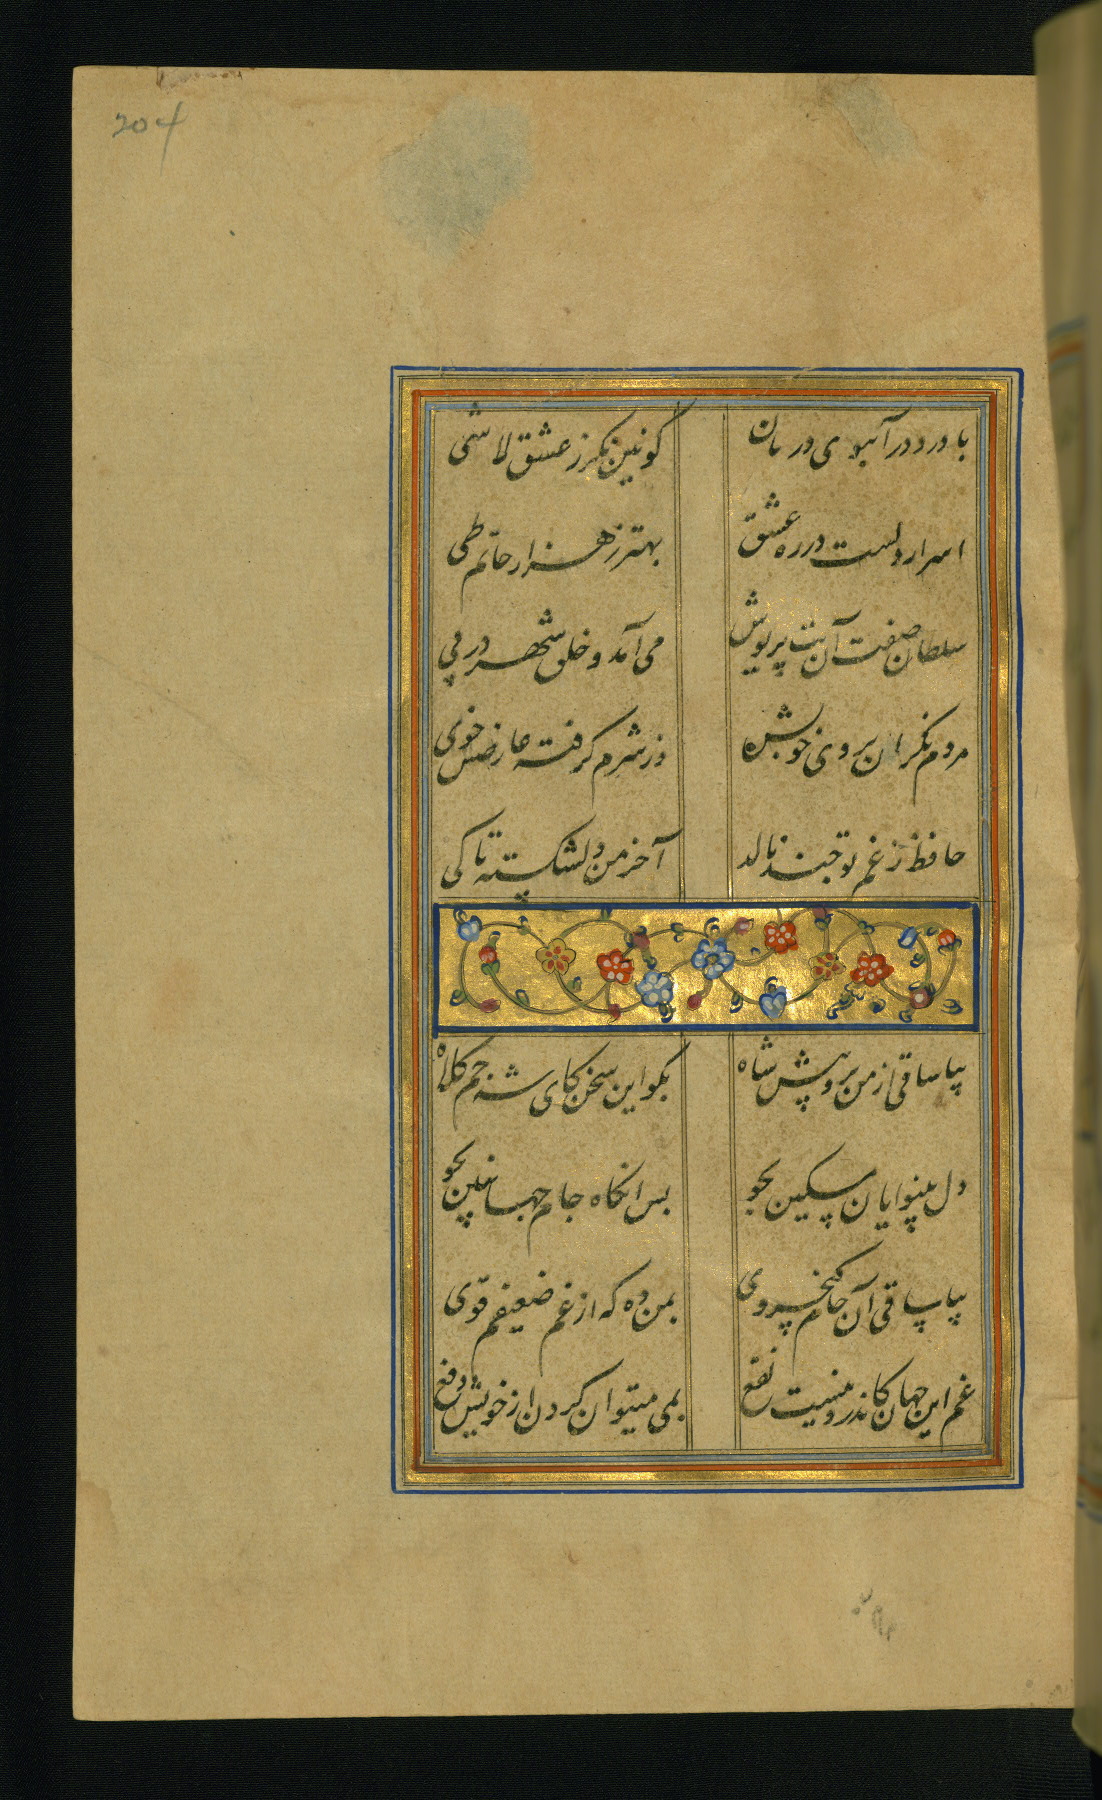 204
با درد درآ بوی درمان کونین نکر ز عشق لاشی
اسرار دلست در ره عشق بهتر ز هزار حاتم طی
سلطان صفت آن بت پریوش می آمد و خلق شهر در پی
مردم نکران بروی خوبش وز شرم کرفته عارضش خوی
حافظ ز غم تو چند نالد آخر من دلشکسته تا کی
بیا ساقی از من برو پیش شاه بکو این سخن کای شه جم کلاه
دل بینوایان مسکین بجو پس انکاه جام جهانبین بجو
بیا ساقی آن جام کیخسروی بمن ده که از غم ضعیفم قوی
غم این جهان کاندرو نیست نفع بمی میتوان کردن از خویش دفع